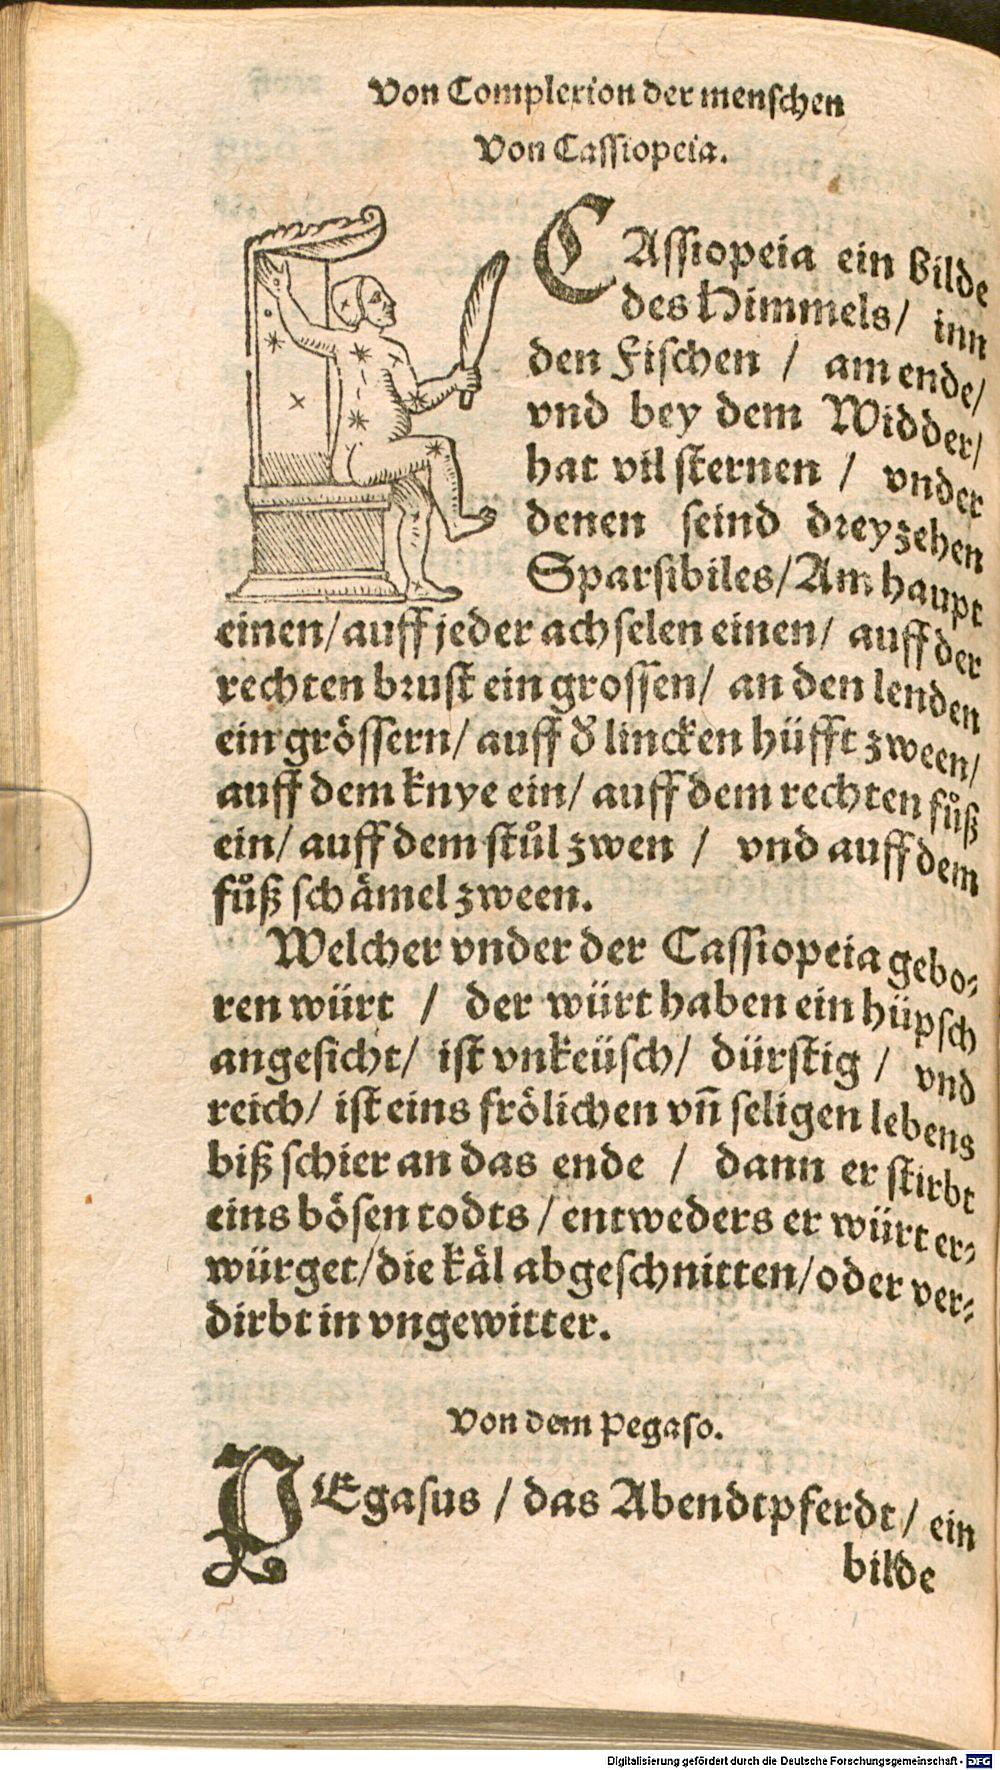 Von Complexion der menſchen
Von Caſſiopeia.
CAſſiopeia ein Bilde
des Himmels/ inn
den Fiſchen / am ende/
vnd bey dem Widder/
hat vil ſternen / vnder
denen ſeind dreyzehen
Sparſibiles/ Am haupt
einen/ auff jeder achſelen einen/ auff der
rechten bruſt ein groſſen/ an den lenden
ein gröſſern/ auff d̕ lincken hüfft zween/
auff dem knye ein/ auff dem rechten fůß
ein/ auff dem ſtůl zwen / vnd auff dem
fůß ſchämel zween.
Welcher vnder der Caſſiopeia gebo⸗
ren würt / der würt haben ein hüpſch
angeſicht/ iſt vnkeüſch/ dürſtig / vnd
reich/ iſt eins frölichen vñ ſeligen lebens
biß ſchier an das ende / dann er ſtirbt
eins böſen todts / entweders er würt er⸗
würget/ die käl abgeſchnitten/ oder ver⸗
dirbt in vngewitter.
Von dem Pegaſo.
PEgaſus / das Abendtpferdt/ ein
bilde
Digitalisierung gefördert durch die Deutsche Forschungsgemeinschaft - DFG